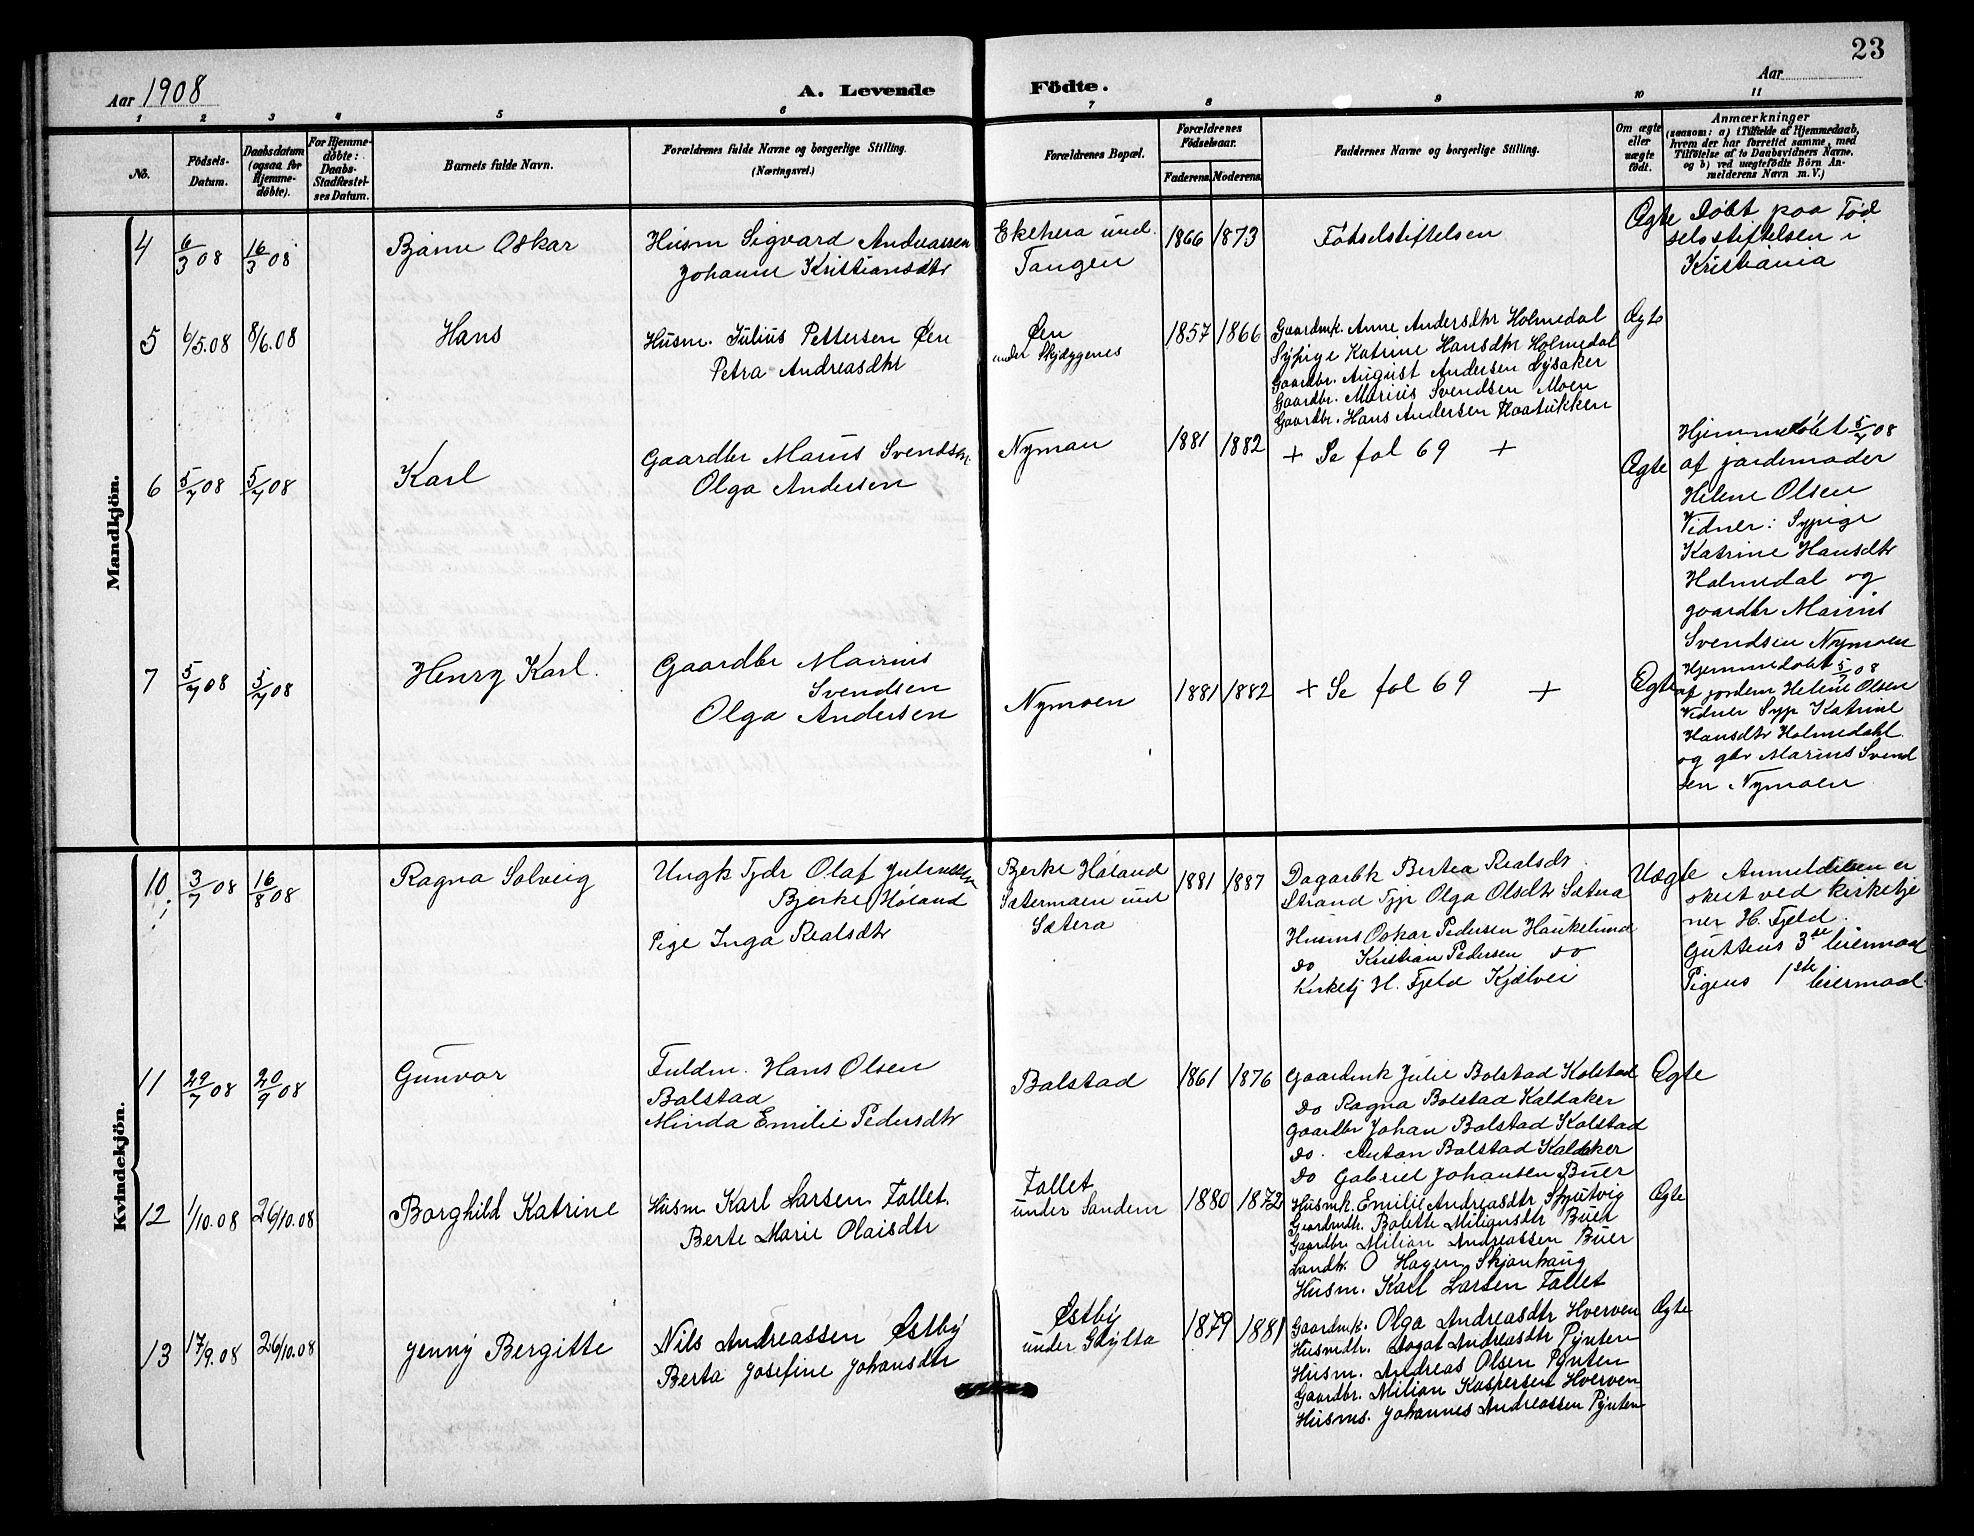 23
Aar 1908
A. Levende Födte.
Aar
1 2 3 4 5 6 7 8 9 10 11
No.
Födsels-
Datum.
Daabsdatum
(ogsaa for
Hjemme-
döbte).
For Hjemme-
döbte:
Daabs-
Stadfæstel-
ses Datum.
Barnets fulde Navn.
Forældrenes fulde Navne og borgerlige Stilling.
(Næringsvei.)
Forældrenes Bopæl.
Forældrenes
Födselsaar.
Faderens. Moderens.
Faddernes Navne og borgerlige Stilling.
Om ægte
eller
uægte
födt.
Anmærkninger
(saasom: a) i Tilfælde af Hjemmedaab,
hvem der har forrettet samme, med
Tilföielse af to Daabsvidners Navne,
og b) ved uægtefödte Börn An-
melderens Navn m. V.)
Mandkjön.
4
6/3 08
16/3 08
Bjarne Oskar
Husm Sigvard Andreassen
Johanne Kristiansdtr
Ekehera und.
Tangen
1866
1873
Fødselstiftelsen
Ægte
Døbt paa Fød
selsstiftelsen i
Kristiania
5
6/5.08
8/6.08
Hans
Husm. Julius Pettersen Øen
Petra Andreasdtr
Øen
under Skjæggenes
1857
1866
Gaardmk. Anne Andersdtr Holmedal
Sypige Katrine Hansdtr Holmedal
Gaardbr. August Andersen Lysaker
Gaardbr. Marius Svendsen Moen
Gaardbr. Hans Andersen Kaatukken
Ægte
6
5/7 08
5/7 08
Karl
Gaardbr Marius Svendsen
Olga Andersen
Nymoen
1881
1882
+ Se fol 69 +
Ægte
Hjemmedøbt 5/7 08
af jordemoder
Helene Olsen
Vidner: Sypige
Katrine Hansdtr
Holmedal og
gaardbr Marius
Svendsen Nymoen
7
5/7 08
5/7 08
Henry Karl.
Gaardbr Marius
Svendsen
Olga Andersen
Nymoen
1881
1882
+ Se fol 69 +
Ægte
Hjemmedøbt 5/7 08
af jordem Helene Olsen
Vidner Syp Katrine
Hansdtr Holmedahl
og gbr Marius Svend
sen Nymoen
Kvindekjön.
10
3/7 08
16/8 08
Ragna Solveig
Ungk Tjdr Olaf Juliussen
Bjerke Høland
Pige Inga Realsdtr
Bjerke Høland
Sætermoen und
Sætera
1881
1887
Dagarbk Bertea Realsdr
Strand Tjp Olga Olsdtr Sætera
Husms Oskar Pedersen Haukelund
Do Kristian Pedersen do
Kirketj H. Fjeld Kjølvei
Uægte
Anmeldelsen er
skeet ved kirketje
ner H. Fjeld.
Guttens 3die leiermaal
Pigens 1ste leiermaal
11
29/7 08
20/9 08
Gunvor
Fuldm. Hans Olsen
Bolstad
Minda Emilie Pedersdtr
Bolstad
1861
1876
Gaardmk Julie Bolstad Kolstad
Do Ragna Bolstad Kaltaker
Gaardbr Johan Bolstad Kolstad
Do. Anton Bolstad Kaltaker
Do Gabriel Johansen Buer
Ægte
12
1/10.08
26/10.08
Borghild Katrine
Husm Karl Larsen Fallet.
Berte Marie Olaisdtr
Fallet
under Sandem
1880
1872
Husmk. Emilie Andreasdtr Spjutvig
Gaardmdtr. Bolette Miliansdtr Buer
Gaardbr. Milian Andreassen Buer
Landh. O Hagen Skjønhaug
Husm. Karl Larsen Fallet
Ægte
13
17/9.08
26/10.08
Jenny Bergitte
Nils Andreassen Østby
Berta Josefine Johansdtr
Østby
under Skylta
1879
1881
Gaardmk. Olga Andreasdtr Hverven
Husmdtr. Dagat Andreasdtr Pynten
Husm. Andreas Olsen Pynten
Gaardbr. Milian Kaspersen Hverven
Husms. Johannes Andreassen Pynten
Ægte